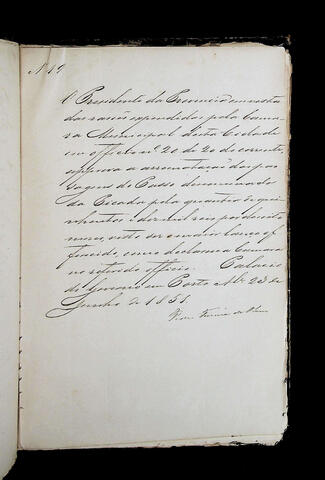 Nº 19
O Presidente da Provincia em vista
das rasões expendidas pela Cama-
ra Municipal desta Cidade
em officio nº 20 de 20 do corrente,
approva a arrematação das pas-
sagens do Passo denominado
da Picada pela quantia de qui-
nhentos e dez mil reis
visto ser o maior lanço of-
ferecido, como declara a Camara
no referido officio. Palacio
do Governo em Porto Alº 23 de
Junho de 1851.